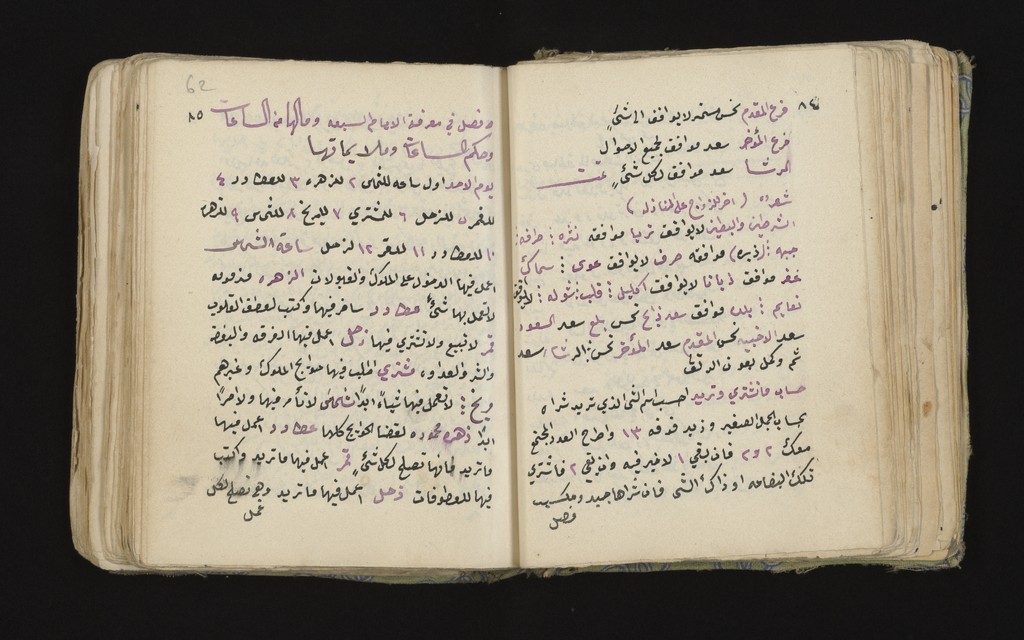 ٨٤
فرع المقدم نحس مستمر لا يوافق الى شئ
فرع المؤخر سعد موافق لجميع الاحوال
الرشا سعد موافق لكل شئ تمت
( اخر للازواج على المنازل )
الشرطين والبطين لا يوافق ثريا موافقه نثره : طرافه :
جبهه : (ذبره) موافقه صرف لا يوافق عوى : سماك
غفر موافق ذبانا لا يوافق اكليل : قلب : شوله : لا يوافق
نعايم : بلده موافق سعد ذابح نحس بلع سعد السعود
سعد الاخبيه نحس المقدم سعد المؤخر نحس : الرشا سعد
ثم وكمل بعون
حساب ما تشتري وتريد احسب اسم الشي الذي تريد شراه
بحساب الجمل الصغير وزيد فوقه ١٣ واطرح العدد المجتمع
معك ٢ و٢ فان بقي ١ لا خير فيه وان بقي ٢ فاشتري
تلك البضاعه او ذاك الشي فان شراها جيد ومكسب
فصل
62
٨٥
فصل في معرفة الايام السبعه وما لها من الساعات
وحكم الساعات وما لا يها فيها
يوم الاحد اول ساعه للشمس ٢ للزهره ٣ للعطارد ٤
للقمر ٥ للزحل ٦ للمشتري ٧ للمريخ ٨ للشمس ٩ للزهره
١٠ للعطارد ١١ للقمر ١٢ لزحل ساعة الشمس
اعمل فيها الدخول على الملوك والقبولات الزهره مذمومه
لا تعمل بها شئ عطارد سافر فيها وكتب لعطف القلوب
قمر لا تبيع ولا تشتري فيها زحل اعمل فيها الفرقه والبغضه
والشر والعداوه مشتري اطلب فيها حوايج الملوك وغيرهم
مريخ : لا تعمل فيها شيأ ابدا شمس لا تأمر فيها ولا امرا
ابدا زهره محموده لقضا الحوايج كلها عطارد اعمل فيها
ما تريد فانها تصلح لكل شئ قمر اعمل فيها ما تريد وكتب
فيها للعطوفات زحل اعمل فيها ما تريد وهي تصلح لكل
عمل